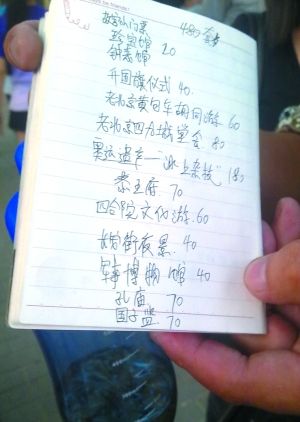 故宫外门票 480 套
珍宝馆 20
钟表馆
升国旗仪式 40
老北京黄包车胡同游 60
老北京四九城堂会 80
奥运遗产一"冰上杂技" 180
恭王府 70
四合院文化游 60
长安街夜景 40
军事博物馆 40
孔庙 70
国子监 70